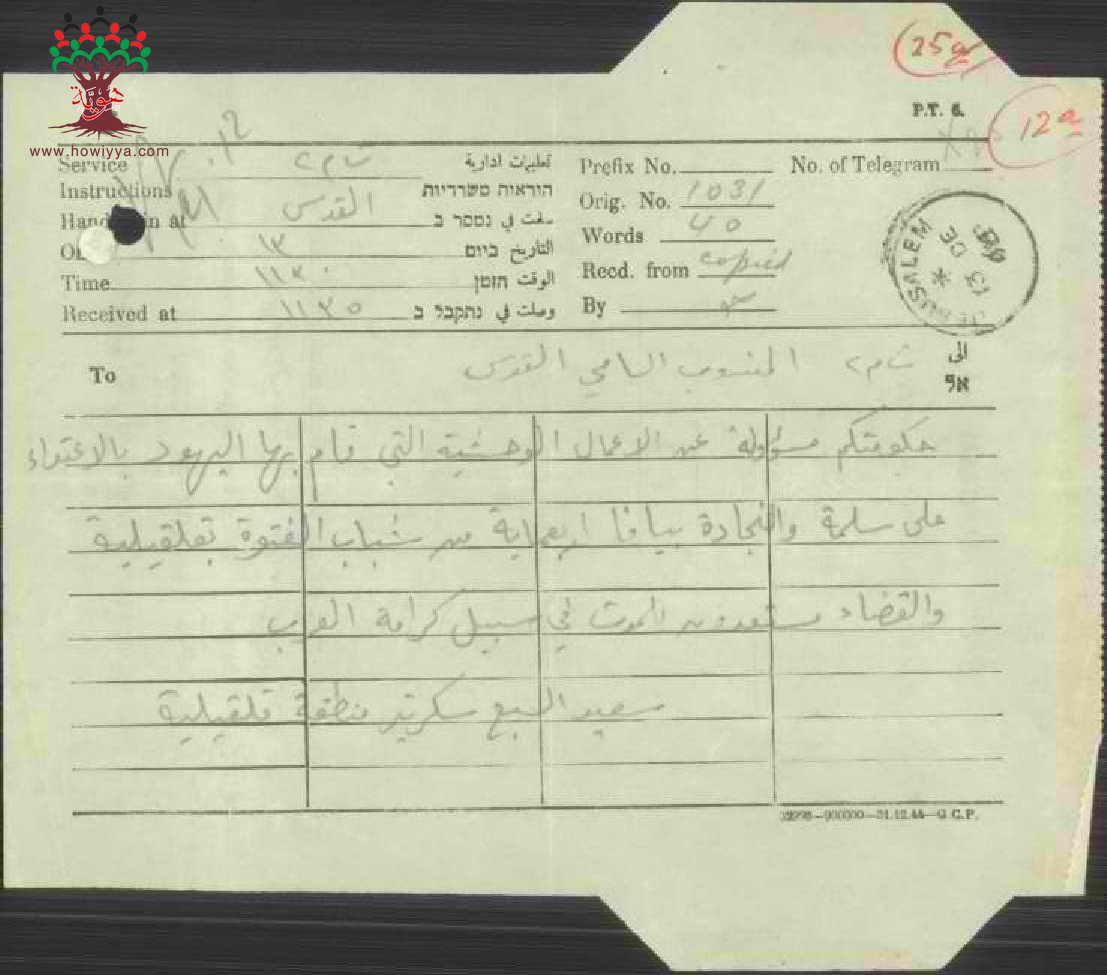 25a
هوية
www.howiyya.com
P.T. 6.
12a
Service تعليمات ادارية
Instructions הוראות משרדיות
Handed in at القدس سلمت في נמסר ב
التاريخ ביום ١٣
Time ١١٢٠ الوقت הזמן
Received at ١١٣٥ وصلت في נתקבל ב
Prefix No.
No. of Telegram
Orig. No. 1031
Words 40
Recd. from copied
By
JERUSALEM
13 DE
To المندوب السامي القدس الى
אל
حكومتكم مسؤولة عن الاعمال الوحشية التي قام بها اليهود بالاعتداء
على سلمة والنجادة بيافا اربعماية من شباب الفتوة بقلقيلية
والقضاء مستعدون للموت في سبيل كرامة العرب
سعيد السبع سكرتير منطقة قلقيلية
32298—900000—31.12.44—G.C.P.